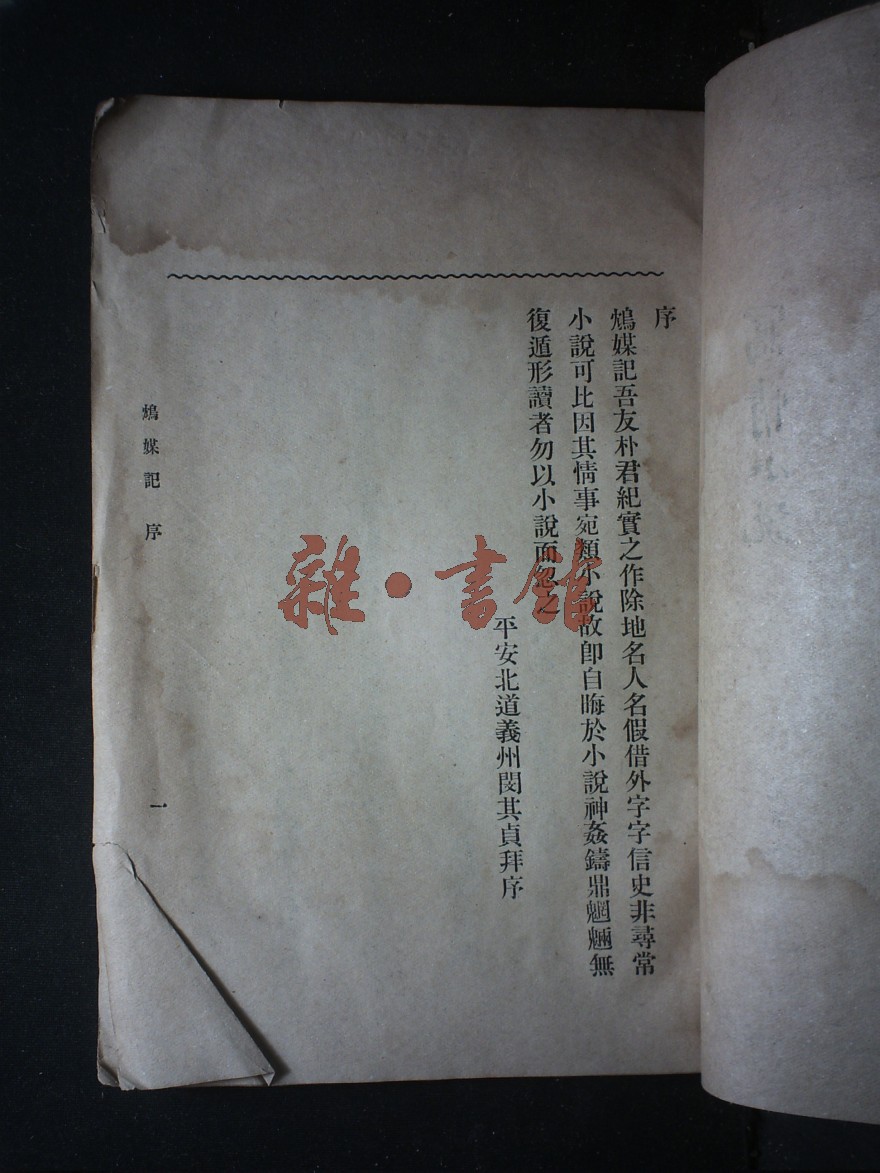 序
鴆媒記吾友朴君紀實之作除地名人名假借外字字信史非尋常
小說可比因其情事宛類小說故卽自晦於小說神姦鑄鼎魍魎無
復遁形讀者勿以小說而忽之
平安北道義州閔其貞拜序
鴆媒記 序
一
雜·書館